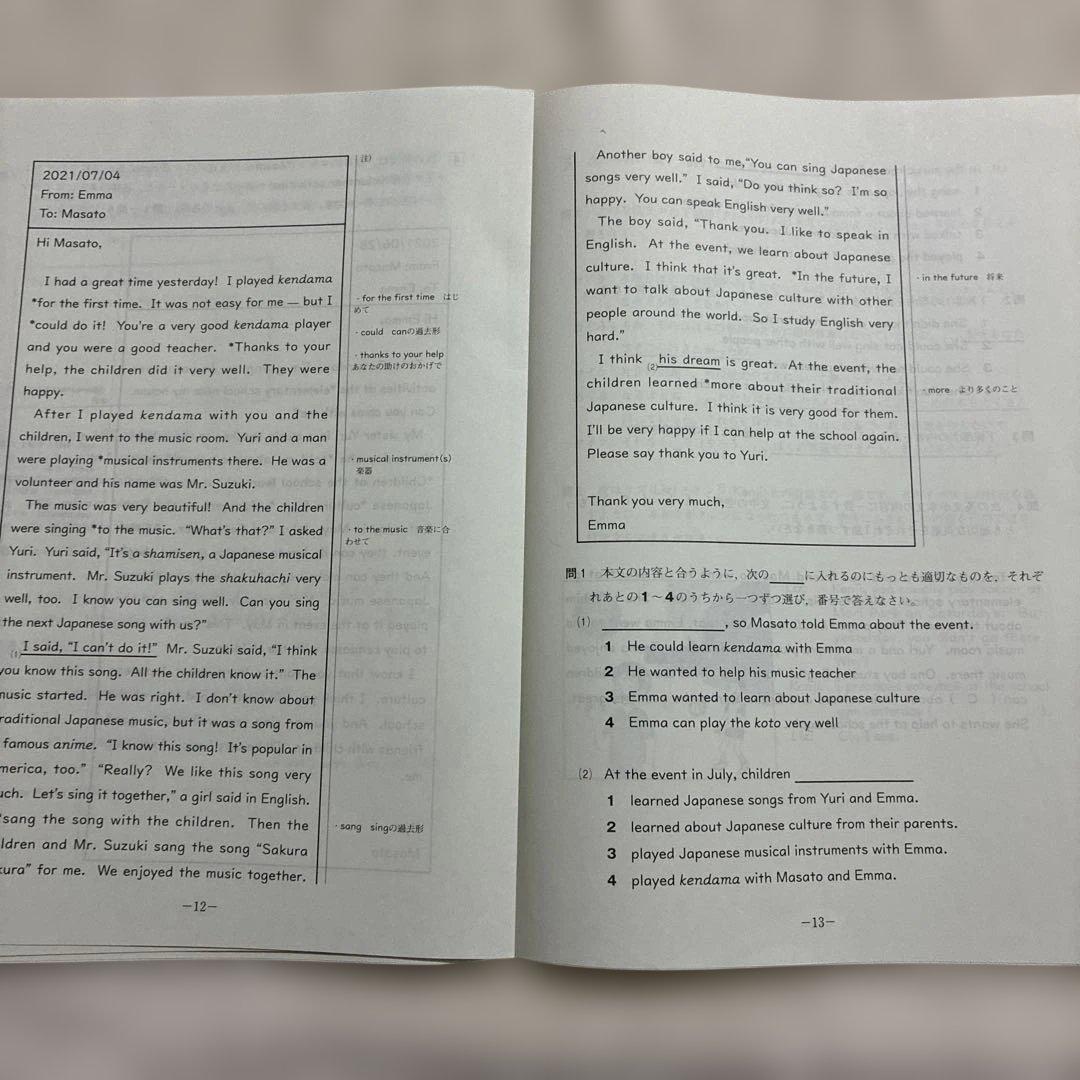 2021/07/04
From: Emma
To: Masato
Hi Masato,
I had a great time yesterday! I played kendama
*for the first time. It was not easy for me — but I
*could do it! You're a very good kendama player
and you were a good teacher. *Thanks to your
help, the children did it very well. They were
happy.
After I played kendama with you and the
children, I went to the music room. Yuri and a man
were playing *musical instruments there. He was a
volunteer and his name was Mr. Suzuki.
The music was very beautiful! And the children
were singing *to the music. "What's that?" I asked
Yuri. Yuri said, "It's a shamisen, a Japanese musical
instrument. Mr. Suzuki plays the shakuhachi very
well, too. I know you can sing well. Can you sing
the next Japanese song with us?"
(1) I said, "I can't do it!" Mr. Suzuki said, "I think
you know this song. All the children know it." The
music started. He was right. I don't know about
raditional Japanese music, but it was a song from
famous anime. "I know this song! It's popular in
merica, too." "Really? We like this song very
uch. Let's sing it together," a girl said in English.
*sang the song with the children. Then the
ldren and Mr. Suzuki sang the song "Sakura
kura" for me. We enjoyed the music together.
注)
・for the first time はじ
めて
・could canの過去形
・thanks to your help
あなたの助けのおかげで
・musical instrument(s)
楽器
・to the music 音楽に合
わせて
・sang singの過去形
—12—
Another boy said to me, "You can sing Japanese
songs very well." I said, "Do you think so? I'm so
happy. You can speak English very well."
The boy said, "Thank you. I like to speak in
English. At the event, we learn about Japanese
culture. I think that it's great. *In the future, I
want to talk about Japanese culture with other
people around the world. So I study English very
hard."
I think (2) his dream is great. At the event, the
children learned *more about their traditional
Japanese culture. I think it is very good for them.
I'll be very happy if I can help at the school again.
Please say thank you to Yuri.
Thank you very much,
Emma
・in the future 将来
・more より多くのこと
問1 本文の内容と合うように，次の____に入れるのにもっとも適切なものを，それぞ
れあとの1～4のうちから一つずつ選び，番号で答えなさい。
(1) ____________, so Masato told Emma about the event.
1 He could learn kendama with Emma
2 He wanted to help his music teacher
3 Emma wanted to learn about Japanese culture
4 Emma can play the koto very well
(2) At the event in July, children ____________
1 learned Japanese songs from Yuri and Emma.
2 learned about Japanese culture from their parents.
3 played Japanese musical instruments with Emma.
4 played kendama with Masato and Emma.
—13—